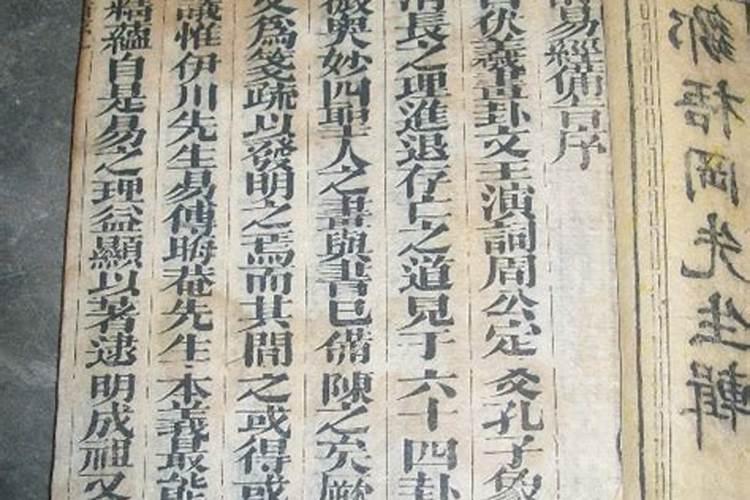 鄒梧岡先生輯
易經備旨序
伏羲畫卦文王演詞周公定爻孔子象
消長之理進退存亡之道見于六十四卦
微奧妙四聖人之書與書已備陳之矣厥
又為箋疏以發明之焉而其間之或得或
議惟伊川先生易傳晦菴先生本義最能
精蘊自是易之理益顯以著逮明成祖又